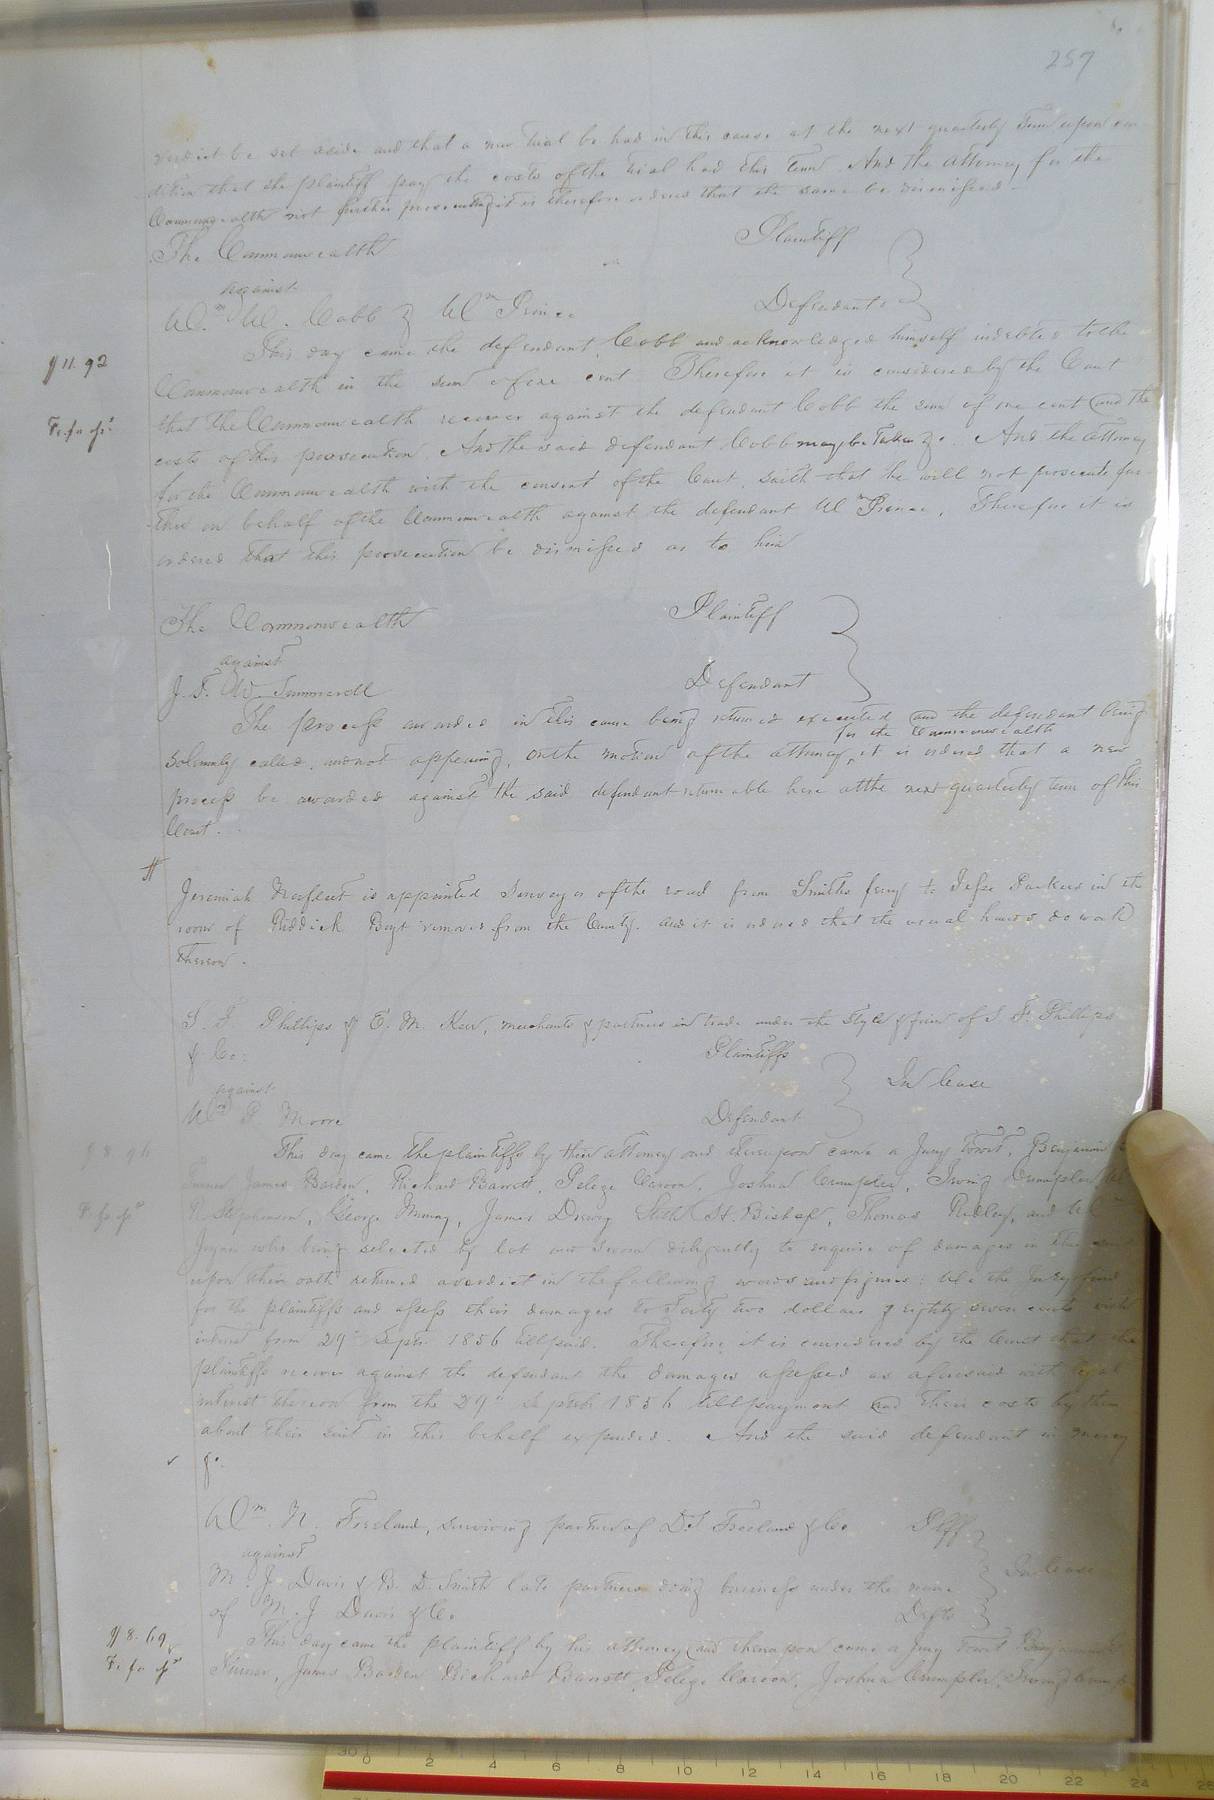 257
verdict be set aside and that a new trial be had in this cause at the next quarterly Term upon con
dition that the plaintiff pay the costs of the trial had this Term. And the attorney for the
Commonwealth not further prosecuting it is therefore ordered that the same be dismissed.
The Commonwealth Plaintiff
against
Wm. W. Cobb & Wm Defendants
This day came the defendant Cobb and acknowledged himself indebted to the
$11.92
Commonwealth in the sum of one cent Therefore it is considered by the Court
that the Commonwealth recover against the defendant Cobb the sum of one cent and the
Fi. fa
costs of this prosecution. And the said defendant Cobb may be Taken &c. And the attorney
for the Commonwealth with the consent of the Court, saith that he will not prosecute fur-
ther on behalf of the Commonwealth against the defendant Wm Therefore it is
ordered that this prosecution be dismissed as to him
The Commonwealth Plaintiff
against
J. T. W. Summerell Defendant
The process awarded in this cause being returned executed and the defendant being
for the Commonwealth
solemnly called, and not appearing, On the motion of the attorney, it is ordered that a new
process be awarded against the said defendant returnable here at the next quarterly term of this
Court.
Jeremiah Norfleet is appointed Surveyor of the road from Smiths ferry to Jesse Parkers in the
room of Riddick Boyt removed from the County. and it is ordered that the usual hands do work
thereon.
S. F. Phillips & E. M. Kew, merchants & partners in trade under the style & firm of S. F. Phillips
& Co: Plaintiffs
against In Case
Wm P. Moore Defendant
This day came the plaintiffs by their attorney and thereupon came a Jury towit, Benjamin
$8.96
Turner James Barden, Richard Barrett, Pelege Carson, Joshua Crumpler, Irving Crumpler Wm
Fi. fa
R. Stephenson, George Murray, James Drewry St. Bishop, Thomas Ridley, and Wm
Joyner who being selected by lot and sworn diligently to enquire of damages in this suit
upon their oath returned a verdict in the following words and figures: We the Jury find
for the plaintiffs and assess their damages to Forty two dollars & eighty seven cents with
interest from 29th Septr. 1856 till paid. Therefore it is considered by the Court that the
plaintiffs recover against the defendant the damages assessed as aforesaid with legal
interest thereon from the 29th Septbr 1856 till payment and their costs by them
about their suit in this behalf expended. And the said defendant in mercy
&c.
Wm. N. Freeland, surviving partner of D.S. Freeland & Co Plff
against
M. J. Davis & B. D. Smith late partners doing business under the name In Case
of M. J Davis & Co. Defts
$8.69
This day came the plaintiff by his attorney and thereupon came a Jury towit Benjamin
Fi. fa
Turner, James Barden Richard Barrett, Pelege Carson, Joshua Crumpler, Irving Crump
0 2 4 6 8 10 12 14 16 18 20 22 24 26